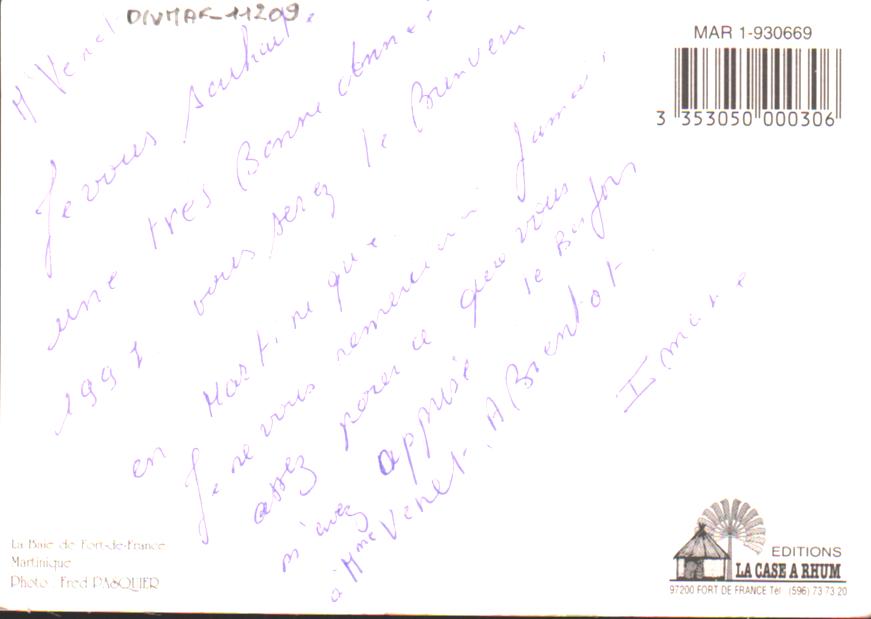 DIVMAR-11209
MAR 1-930669
3 353050 000306
Mr Venet
Je vous souhaite
une tres Bonne Année
1997 vous serez le Bienvenu
en Martinique
Je ne vous remercierai Jamais
assez pour ce que vous
m'avez appris le Bonjour
à Mme Venet, A Bientot
Imane
La Baie de Fort-de-France
Martinique
Photo : Fred PASQUIER
EDITIONS
LA CASE A RHUM
97200 FORT DE FRANCE Tél (596) 73 73 20